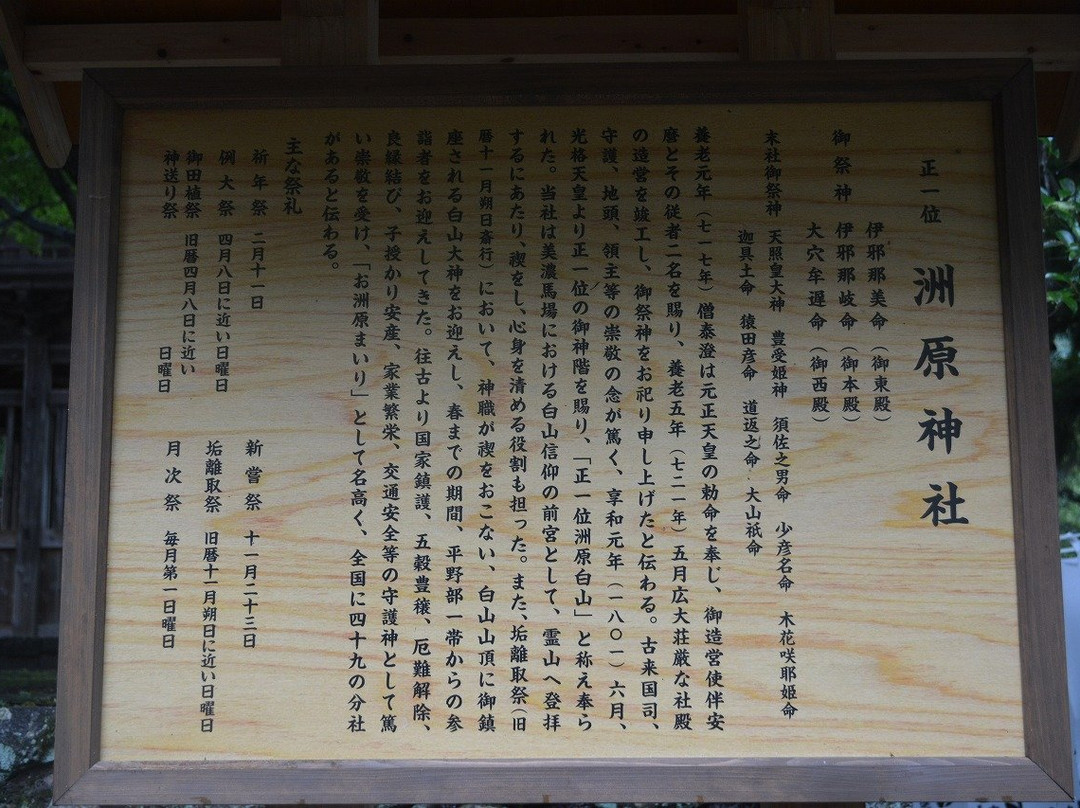 正一位 洲原神社
御祭神 伊邪那美命(御東殿)
伊邪那岐命(御本殿)
大穴牟遅命(御西殿)
末社御祭神 天照皇大神 豊受姫神 須佐之男命 少彦名命 木花咲耶姫命
迦具土命 猿田彦命 道返之命 大山祇命
養老元年(七一七年)僧泰澄は元正天皇の勅命を奉じ、御造営使伴安
麿とその従者二名を賜り、養老五年(七二一年)五月広大荘厳な社殿
の造営を竣工し、御祭神をお祀り申し上げたと伝わる。古来国司、
守護、地頭、領主等の崇敬の念が篤く、享和元年(一八〇一)六月、
光格天皇より正一位の御神階を賜り、「正一位洲原白山」と称え奉ら
れた。当社は美濃馬場における白山信仰の前宮として、霊山へ登拝
するにあたり、禊をし、心身を清める役割も担った。また、垢離取祭(旧
暦十一月朔日斎行)において、神職が禊をおこない、白山山頂に御鎮
座される白山大神をお迎えし、春までの期間、平野部一帯からの参
詣者をお迎えしてきた。往古より国家鎮護、五穀豊穣、厄難解除、
良縁結び、子授かり安産、家業繁栄、交通安全等の守護神として篤
い崇敬を受け、「お洲原まいり」として名高く、全国に四十九の分社
があると伝わる。
主な祭礼
祈年祭 二月十一日
例大祭 四月八日に近い日曜日
御田植祭 旧暦四月八日に近い
神送り祭 日曜日
新嘗祭 十一月二十三日
垢離取祭 旧暦十一月朔日に近い日曜日
月次祭 毎月第一日曜日